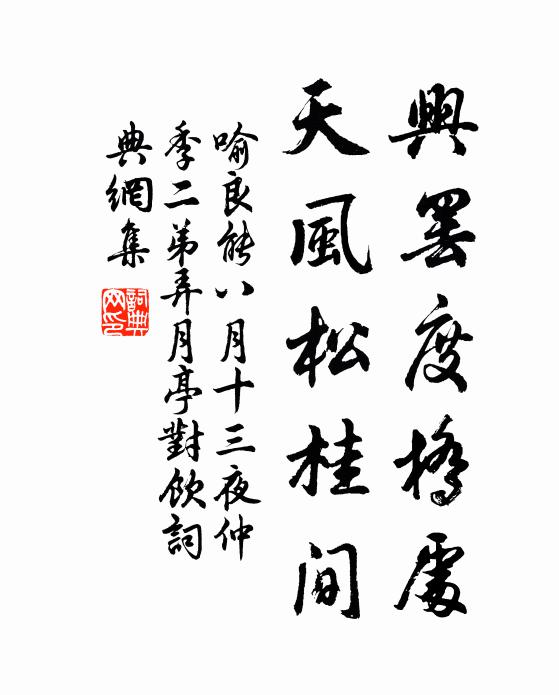 興罷度橋處
天風松桂間
喻良能八月十三夜仲
季二弟弄月亭對飲詞
典網集
詞典网印